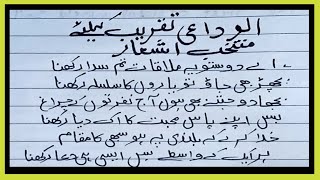 الوداعی تقریب کیلئے
منتخب اشعار
اے دوستو یہ ملاقات تم سدا رکھنا
بچھڑ بھی جاؤ تو یاروں کا سلسلہ رکھنا
بجھا دو جتنے بھی ہوں آج نفرتوں کے چراغ
بس اپنے پاس محبت کا اک دیا رکھنا
خدا کرے کہ بلندی پہ ہو سبھی کا مقام
ہر ایک کے واسطے بس ایسی ہی دعا رکھنا